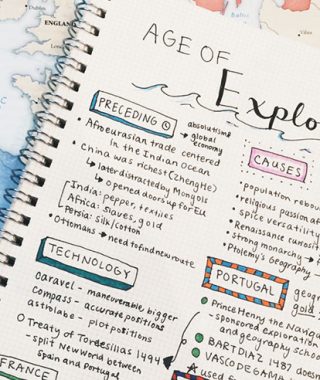 Dublin
ENGLAND
Baltic
AGE OF
Explo
PRECEDING
absolutism
→ global
economy
• Afroeurasian trade centered
in the Indian Ocean
• China was richest (Zheng He)
↳ later distracted by Mongols
↳ opened doors up for EU
India: pepper, textiles
Africa: slaves, gold
Persia: silk/cotton
• Ottomans → need to find new route
TECHNOLOGY
caravel - maneuverable bigger
compass - accurate positions
astrolabe - plot positions
Treaty of Tordesillas 1494
- split New World between
Spain and Portugal
FRANCE
CAUSES
• population rebou
• religious passion af
• spice versatility
• Renaissance curiosit
• strong monarchy →
• Ptolemy's Geography
PORTUGAL
geogr
gold
Prince Henry the Naviga
- sponsored exploration
and geography school
BART DIAZ 1487 doesn
VASCO DE GAMA
used c